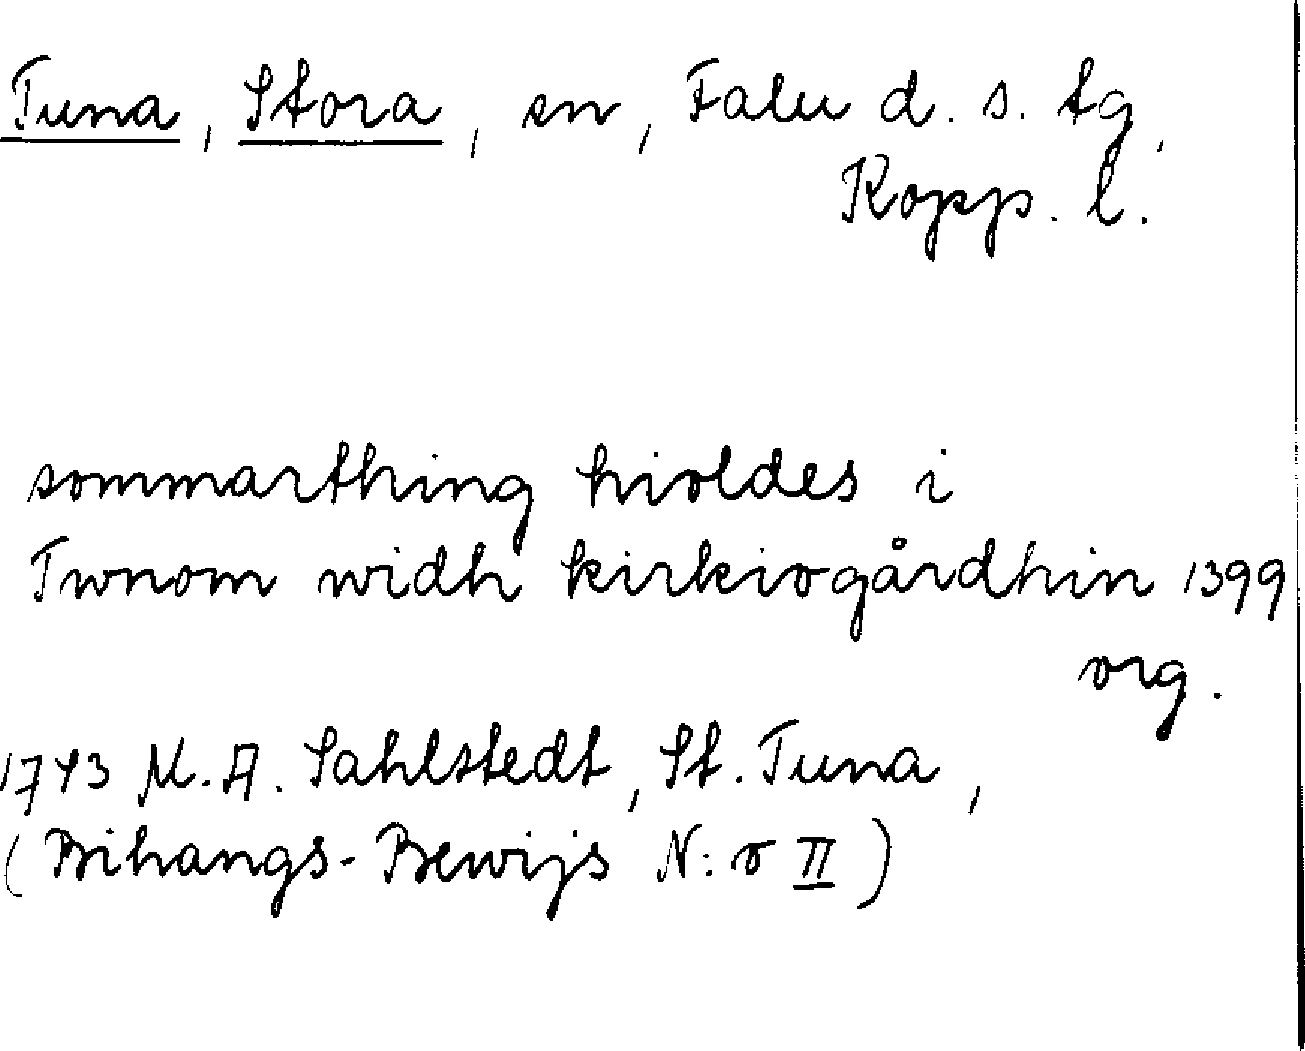 Tuna, Stora, sn, Falu d. s. tg,
Kopp. l.
sommarthing hioldes i
Twnom widh kirkiogårdhin 1399
org.
1743 M. A. Sahlstedt, St. Tuna,
(Bihangs-Bewijs N:o II)